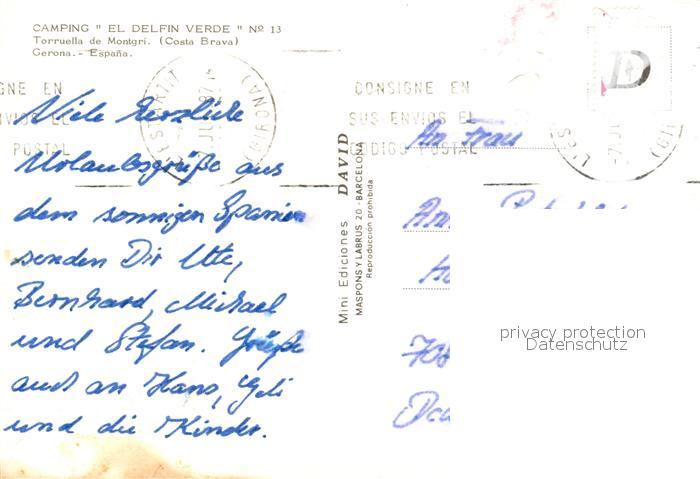 CAMPING " EL DELFIN VERDE " Nº 13
Torruella de Montgrí. (Costa Brava)
Gerona. - España.
Viele herzliche
Urlaubsgrüße aus
dem sonnigen Spanien
senden Dir Ute,
Bernhard, Michael
und Stefan. Grüße
auch an Hans, Geli
und die Kinder.
Mini Ediciones DAVID
MASPONS Y LABRUS 20 - BARCELONA
Reproducción prohibida
CONSIGNE EN
SUS ENVIOS EL
CODIGO POSTAL
GNE EN
NVIOS EL
POSTAL
(GIRONA)
D
An Frau
privacy protection
Datenschutz